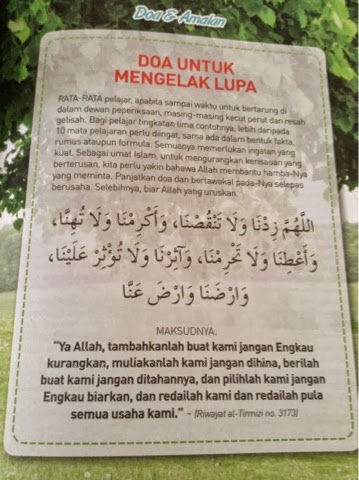 Doa & Amalan
DOA UNTUK
MENGELAK LUPA
RATA-RATA pelajar, apabila sampai waktu untuk bertarung di
dalam dewan peperiksaan, masing-masing kecut perut dan resah
gelisah. Bagi pelajar tingkatan lima contohnya, lebih daripada
10 mata pelajaran perlu diingat, sama ada dalam bentuk fakta,
rumus ataupun formula. Semuanya memerlukan ingatan yang
kuat. Sebagai umat Islam, untuk mengurangkan kerisauan yang
berterusan, kita perlu yakin bahawa Allah membantu hamba-Nya
yang meminta. Panjatkan doa dan bertawakal pada-Nya selepas
berusaha. Selebihnya, biar Allah yang uruskan.
اَللَّهُمَّ زِدْنَا وَلَا تَنْقُصْنَا، وَأَكْرِمْنَا وَلَا تُهِنَّا،
وَأَعْطِنَا وَلَا تَحْرِمْنَا، وَآثِرْنَا وَلَا تُؤْثِرْ عَلَيْنَا،
وَارْضِنَا وَارْضَ عَنَّا
MAKSUDNYA:
"Ya Allah, tambahkanlah buat kami jangan Engkau
kurangkan, muliakanlah kami jangan dihina, berilah
buat kami jangan ditahannya, dan pilihlah kami jangan
Engkau biarkan, dan redailah kami dan redailah pula
semua usaha kami." - (Riwayat al-Tirmizi no. 3173)